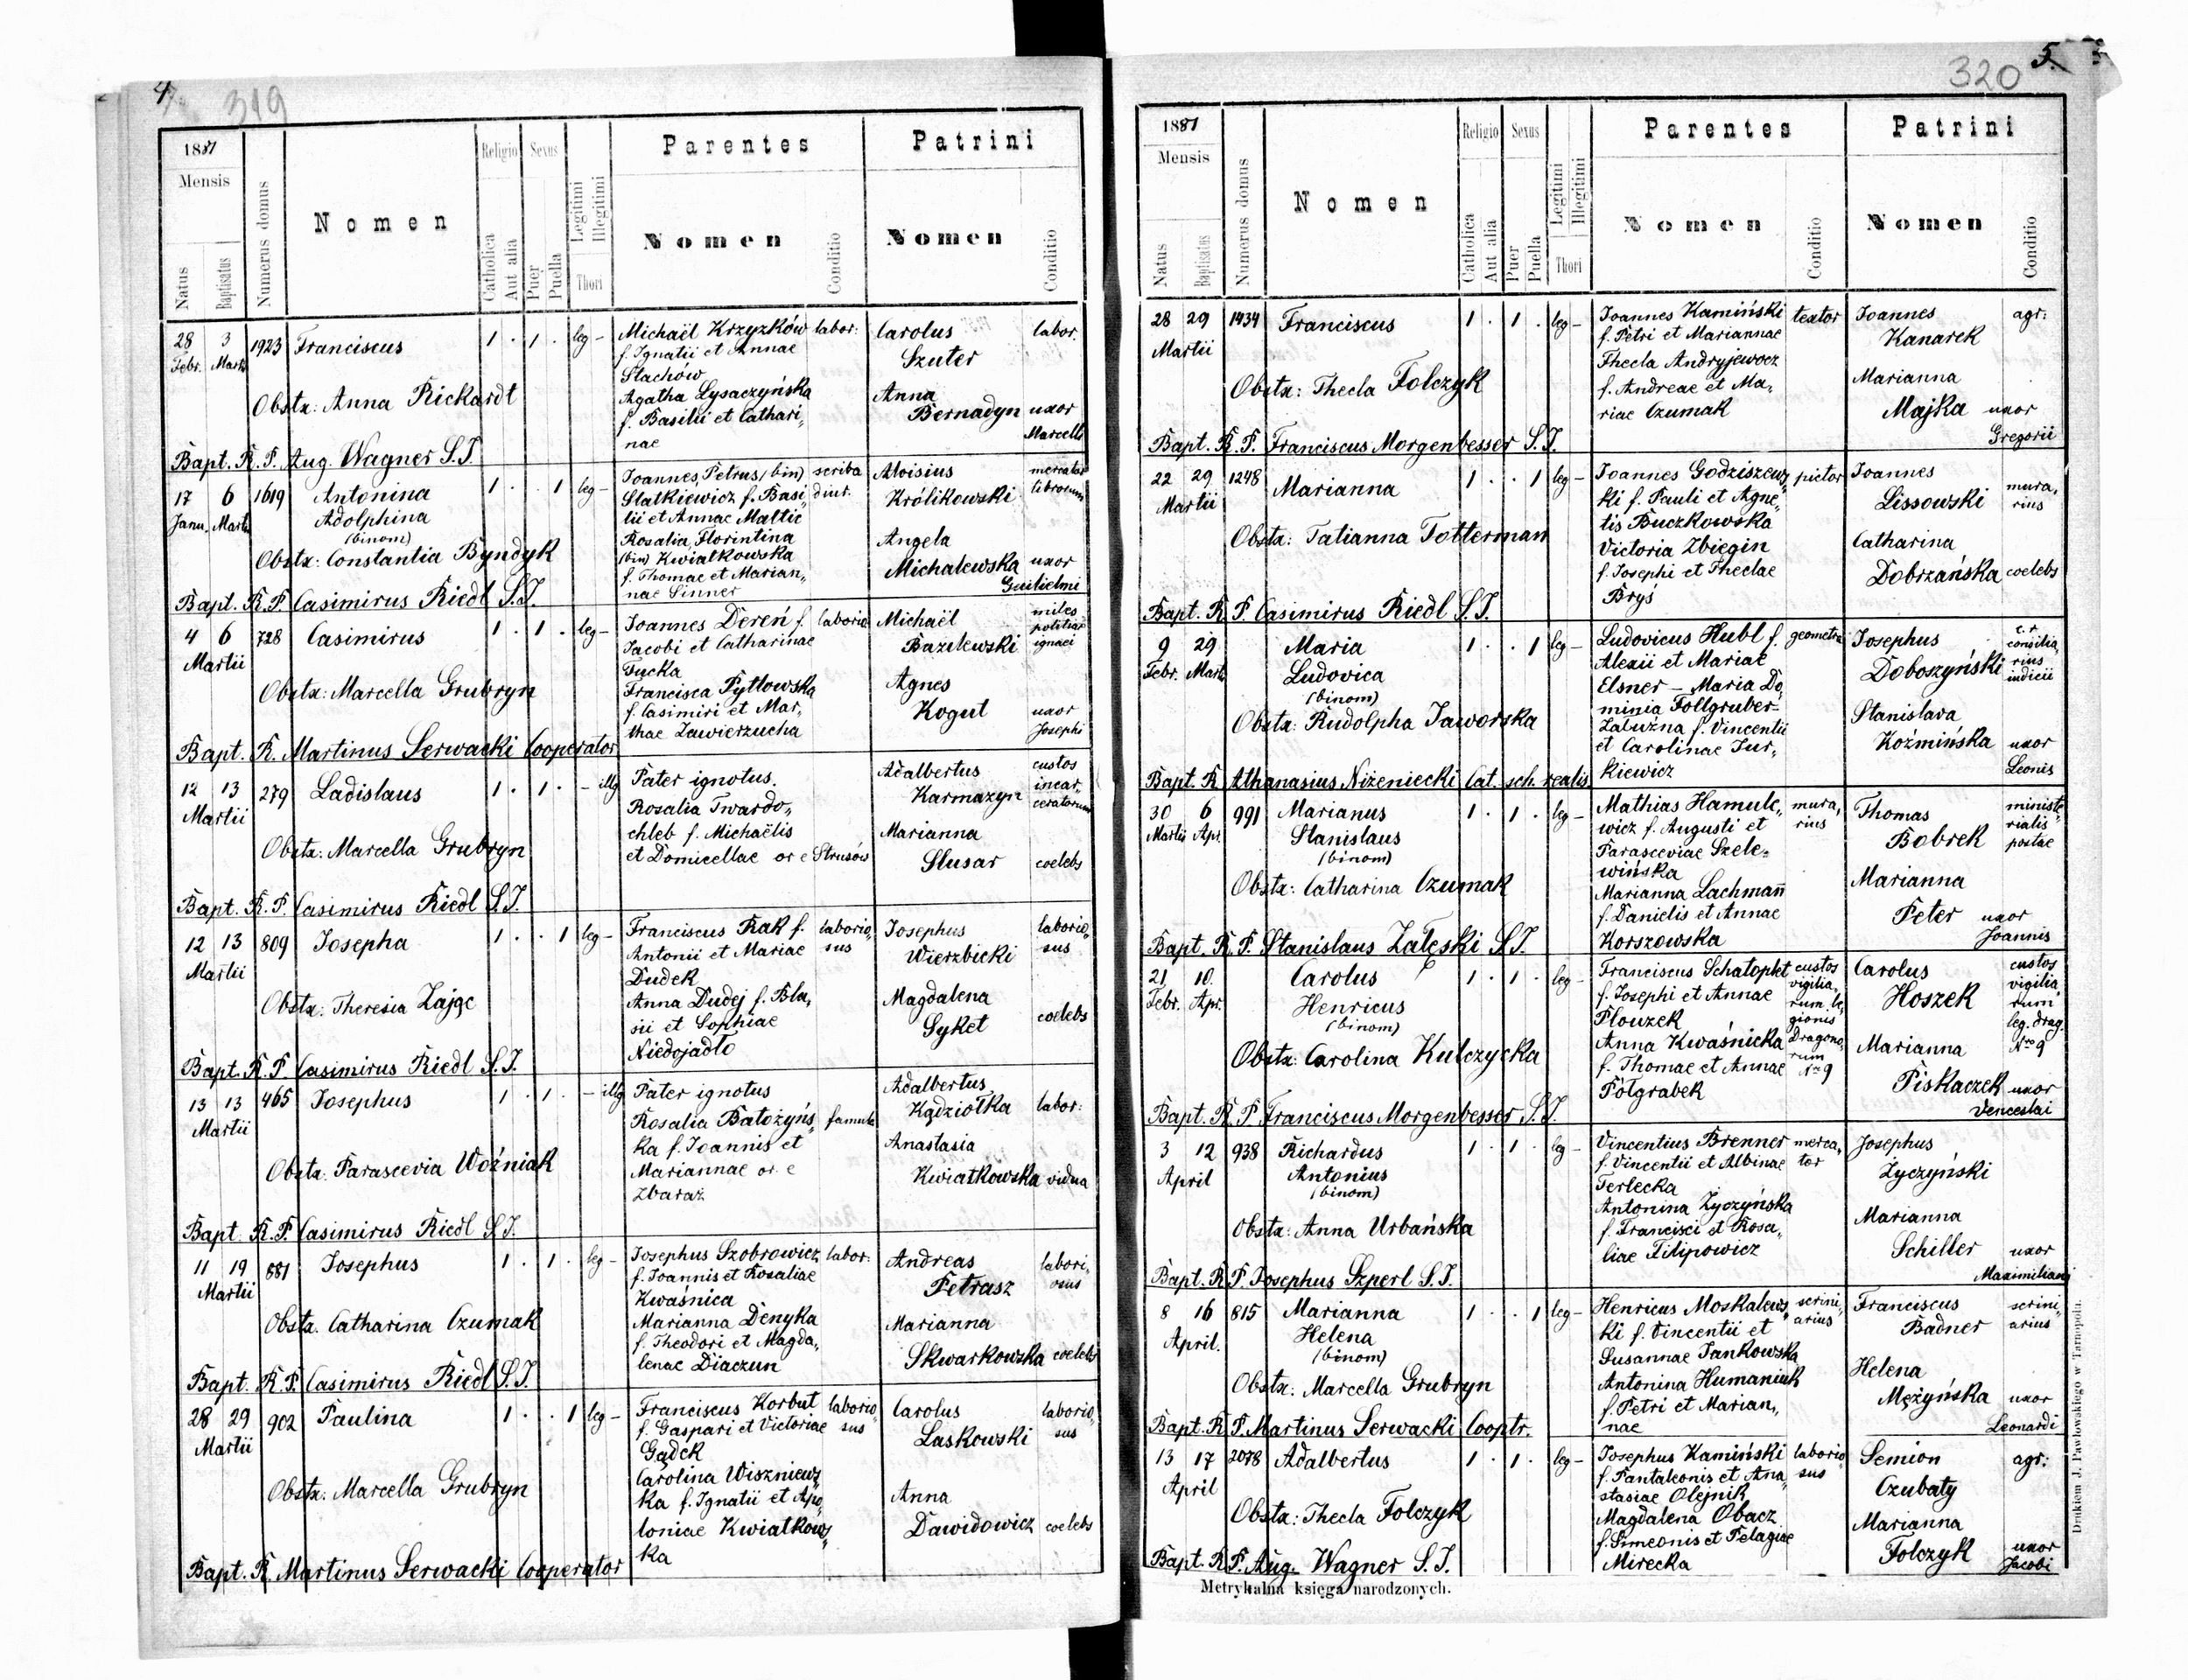 4
319
1887
Mensis
Natus
Baptisatus
Numerus domus
Nomen
Religio
Catholica
Aut alia
Sexus
Puer
Puella
Legitimi
Illegitimi
Thori
Parentes
Nomen
Conditio
Patrini
Nomen
Conditio
28 3 1923 Franciscus 1 . 1 . leg –
Febr. Martii
Obstx: Anna Rickardt
Bapt. R. P. Aug. Wagner S.J.
Michaël Krzyzków labor:
f. Ignatii et Annae
Stachów
Agatha Lysaczyńska
f. Basilii et Cathari„
nae
Carolus labor.
Szuter
Anna
Bernadyn uxor
Marcelli
17 6 1619 Antonina 1 . . 1 leg –
Janu. Martii Adolphina
(binom)
Obstx: Constantia Byndyk
Bapt. R. P. Casimirus Riedl S.J.
Joannes, Petrus (bin) scriba
Slatkiewicz f. Basi„ diur.
lii et Annae Maltic
Rosalia, Florintina
(bin) Kwiatkowska
f. Thomae et Marian„
nae Sinner
Aloisius mercator
Królikowski librorum
Angela
Michalewska uxor
Guilielmi
4 6 728 Casimirus 1 . 1 . leg –
Martii
Obstx: Marcella Grubryn
Bapt. R. Martinus Serwacki Cooperator
Joannes Dereń f. laborio
Jacobi et Catharinae
Fucka
Francisca Pytlowska
f. Casimiri et Mar„
thae Zawierzucha
Michaël miles
Bazilewski politiae
ignaci
Agnes
Kogut uxor
Josephi
12 13 279 Ladislaus 1 . 1 . – illg
Martii
Obstx: Marcella Grubryn
Bapt. R. P. Casimirus Riedl S.J.
Pater ignotus.
Rosalia Twardo„
chleb f. Michaëlis
et Domicellae or e Strusów
Adalbertus custos
Karmazyn incar„
ceratorum
Marianna
Slusar coelebs
12 13 809 Josepha 1 . . 1 leg –
Martii
Obstx: Theresia Zając
Bapt. R. P. Casimirus Riedl S.J.
Franciscus Rak f. laborio„
Antonii et Mariae sus
Dudek
Anna Dudej f. Bla„
sii et Sophiae
Niedojadło
Josephus laborio„
Wierzbicki sus
Magdalena
Syket coelebs
13 13 465 Josephus 1 . 1 . – illg
Martii
Obstx. Parascevia Woźniak
Bapt. R. P. Casimirus Riedl S.J.
Pater ignotus
Rosalia Batożyńs„ famula
ka f. Joannis et
Mariannae or e
Zbaraż
Adalbertus
Kądziołka labor:
Anastasia
Kwiatkowska vidua
11 19 881 Josephus 1 . 1 . leg –
Martii
Obstx. Catharina Czumak
Bapt. R. P. Casimirus Riedl S.J.
Josephus Szobrowicz labor:
f. Joannis et Rosaliae
Kwaśnica
Marianna Denyka
f. Theodori et Magda„
lenae Diaczun
Andreas labori„
Petrasz osus
Marianna
Skwarkowska coelebs
28 29 902 Paulina 1 . . 1 leg –
Martii
Obstx: Marcella Grubryn
Bapt. R. Martinus Serwacki Cooperator
Franciscus Korbut laborio„
f. Gaspari et Victoriae sus
Gądek
Carolina Wiszniews„
ka f. Ignatii et Apo„
loniae Kwiatkows„
ka
Carolus laborio„
Laskowski sus
Anna
Dawidowicz coelebs
320
5.
1887
Mensis
Natus
Baptisatus
Numerus domus
Nomen
Religio
Catholica
Aut alia
Sexus
Puer
Puella
Legitimi
Illegitimi
Thori
Parentes
Nomen
Conditio
Patrini
Nomen
Conditio
28 29 1434 Franciscus 1 . 1 . leg –
Martii
Obstx: Thecla Folczyk
Bapt. R. P. Franciscus Morgenbesser S.J.
Joannes Kamiński textor
f. Petri et Mariannae
Thecla Andryjewocz
f. Andreae et Ma„
riae Czumak
Joannes agr:
Kanarek
Marianna
Majka uxor
Gregorii
22 29 1248 Marianna 1 . . 1 leg –
Martii
Obstx: Tatianna Totterman
Bapt. R. P. Casimirus Riedl S.J.
Joannes Godziszews„ pictor
ki f. Pauli et Agne„
tis Buczkowska
Victoria Zbiegin
f. Josephi et Theclae
Bryś
Joannes mura„
Lissowski rius
Catharina
Dobrzańska coelebs
9 29 Maria 1 . . 1 leg –
Febr. Mart. Ludovica
(binom)
Obstx: Rudolpha Jaworska
Bapt. R. Athanasius Niżeniecki Cat. sch. realis
Ludovicus Hubl f. geometra
Alexii et Mariae
Elsner – Maria Do„
minia Follgruber–
Załużna f. Vincentii
et Carolinae Jur„
kiewicz
Josephus c.r.
Doboszyński consilia„
rius
iudicii
Stanislava
Koźmińska uxor
Leonis
30 6 991 Marianus 1 . 1 . leg –
Martii Apr. Stanislaus
(binom)
Obstx: Catharina Czumak
Bapt. R. P. Stanislaus Załęski S.J.
Mathias Hamule„ mura„
wicz f. Augusti et rius
Parasceviae Szele„
wińska
Marianna Lachmann
f. Danielis et Annae
Korszowska
Thomas ministe„
Bobrek rialis
postae
Marianna
Peter uxor
Joannis
21 10. Carolus 1 . 1 . leg –
Febr. Apr. Henricus
(binom)
Obstx: Carolina Kulczycka
Bapt. R. P. Franciscus Morgenbesser S.J.
Franciscus Schatoplet custos
f. Josephi et Annae vigilia„
Plouzek rum le„
gionis
Anna Kwaśnicka Dragono„
f. Thomae et Annae rum
Półgrabek Nro 9
Carolus custos
Hoszek vigilia„
rum
leg. drag.
Marianna Nro 9
Piskaczek uxor
Venceslai
3 12 938 Richardus 1 . 1 . leg –
April Antonius
(binom)
Obstx: Anna Urbańska
Bapt. R. P. Josephus Szperl S.J.
Vincentius Brenner merca„
f. Vincentii et Albinae tor
Terlecka
Antonina Życzyńska
f. Francisci et Rosa„
liae Filipowicz
Josephus
Życzyński
Marianna
Schiller uxor
Maximiliani
8 16 815 Marianna 1 . . 1 leg –
April. Helena
(binom)
Obstx: Marcella Grubryn
Bapt. R. P. Martinus Serwacki Cooptr.
Henricus Moskalews„ scrini„
ki f. Vincentii et arius
Susannae Jankowska
Antonina Humaniuk
f. Petri et Marian„
nae
Franciscus scrini„
Badner arius
Helena
Mężyńska uxor
Leonardi
13 17 2078 Adalbertus 1 . 1 . leg –
April
Obstx: Thecla Folczyk
Bapt. R. P. Aug. Wagner S.J.
Josephus Kamiński laborio
f. Pantaleonis et Ana„ sus
stasiae Olejnik
Magdalena Obacz
f. Simeonis et Pelagiae
Mirecka
Semion agr:
Czubaty
Marianna
Folczyk uxor
Jacobi
Metrykalna księga narodzonych.
Drukiem J. Pawłowskiego w Tarnopolu.